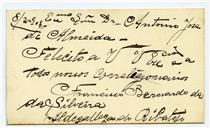 Exmo Snr Dr Antonio José
de Almeida
Felicito a V Exa
e a
todos nossos correligionarios
Francisco Bernardo
da Silveira
Aldegallega do Ribatejo